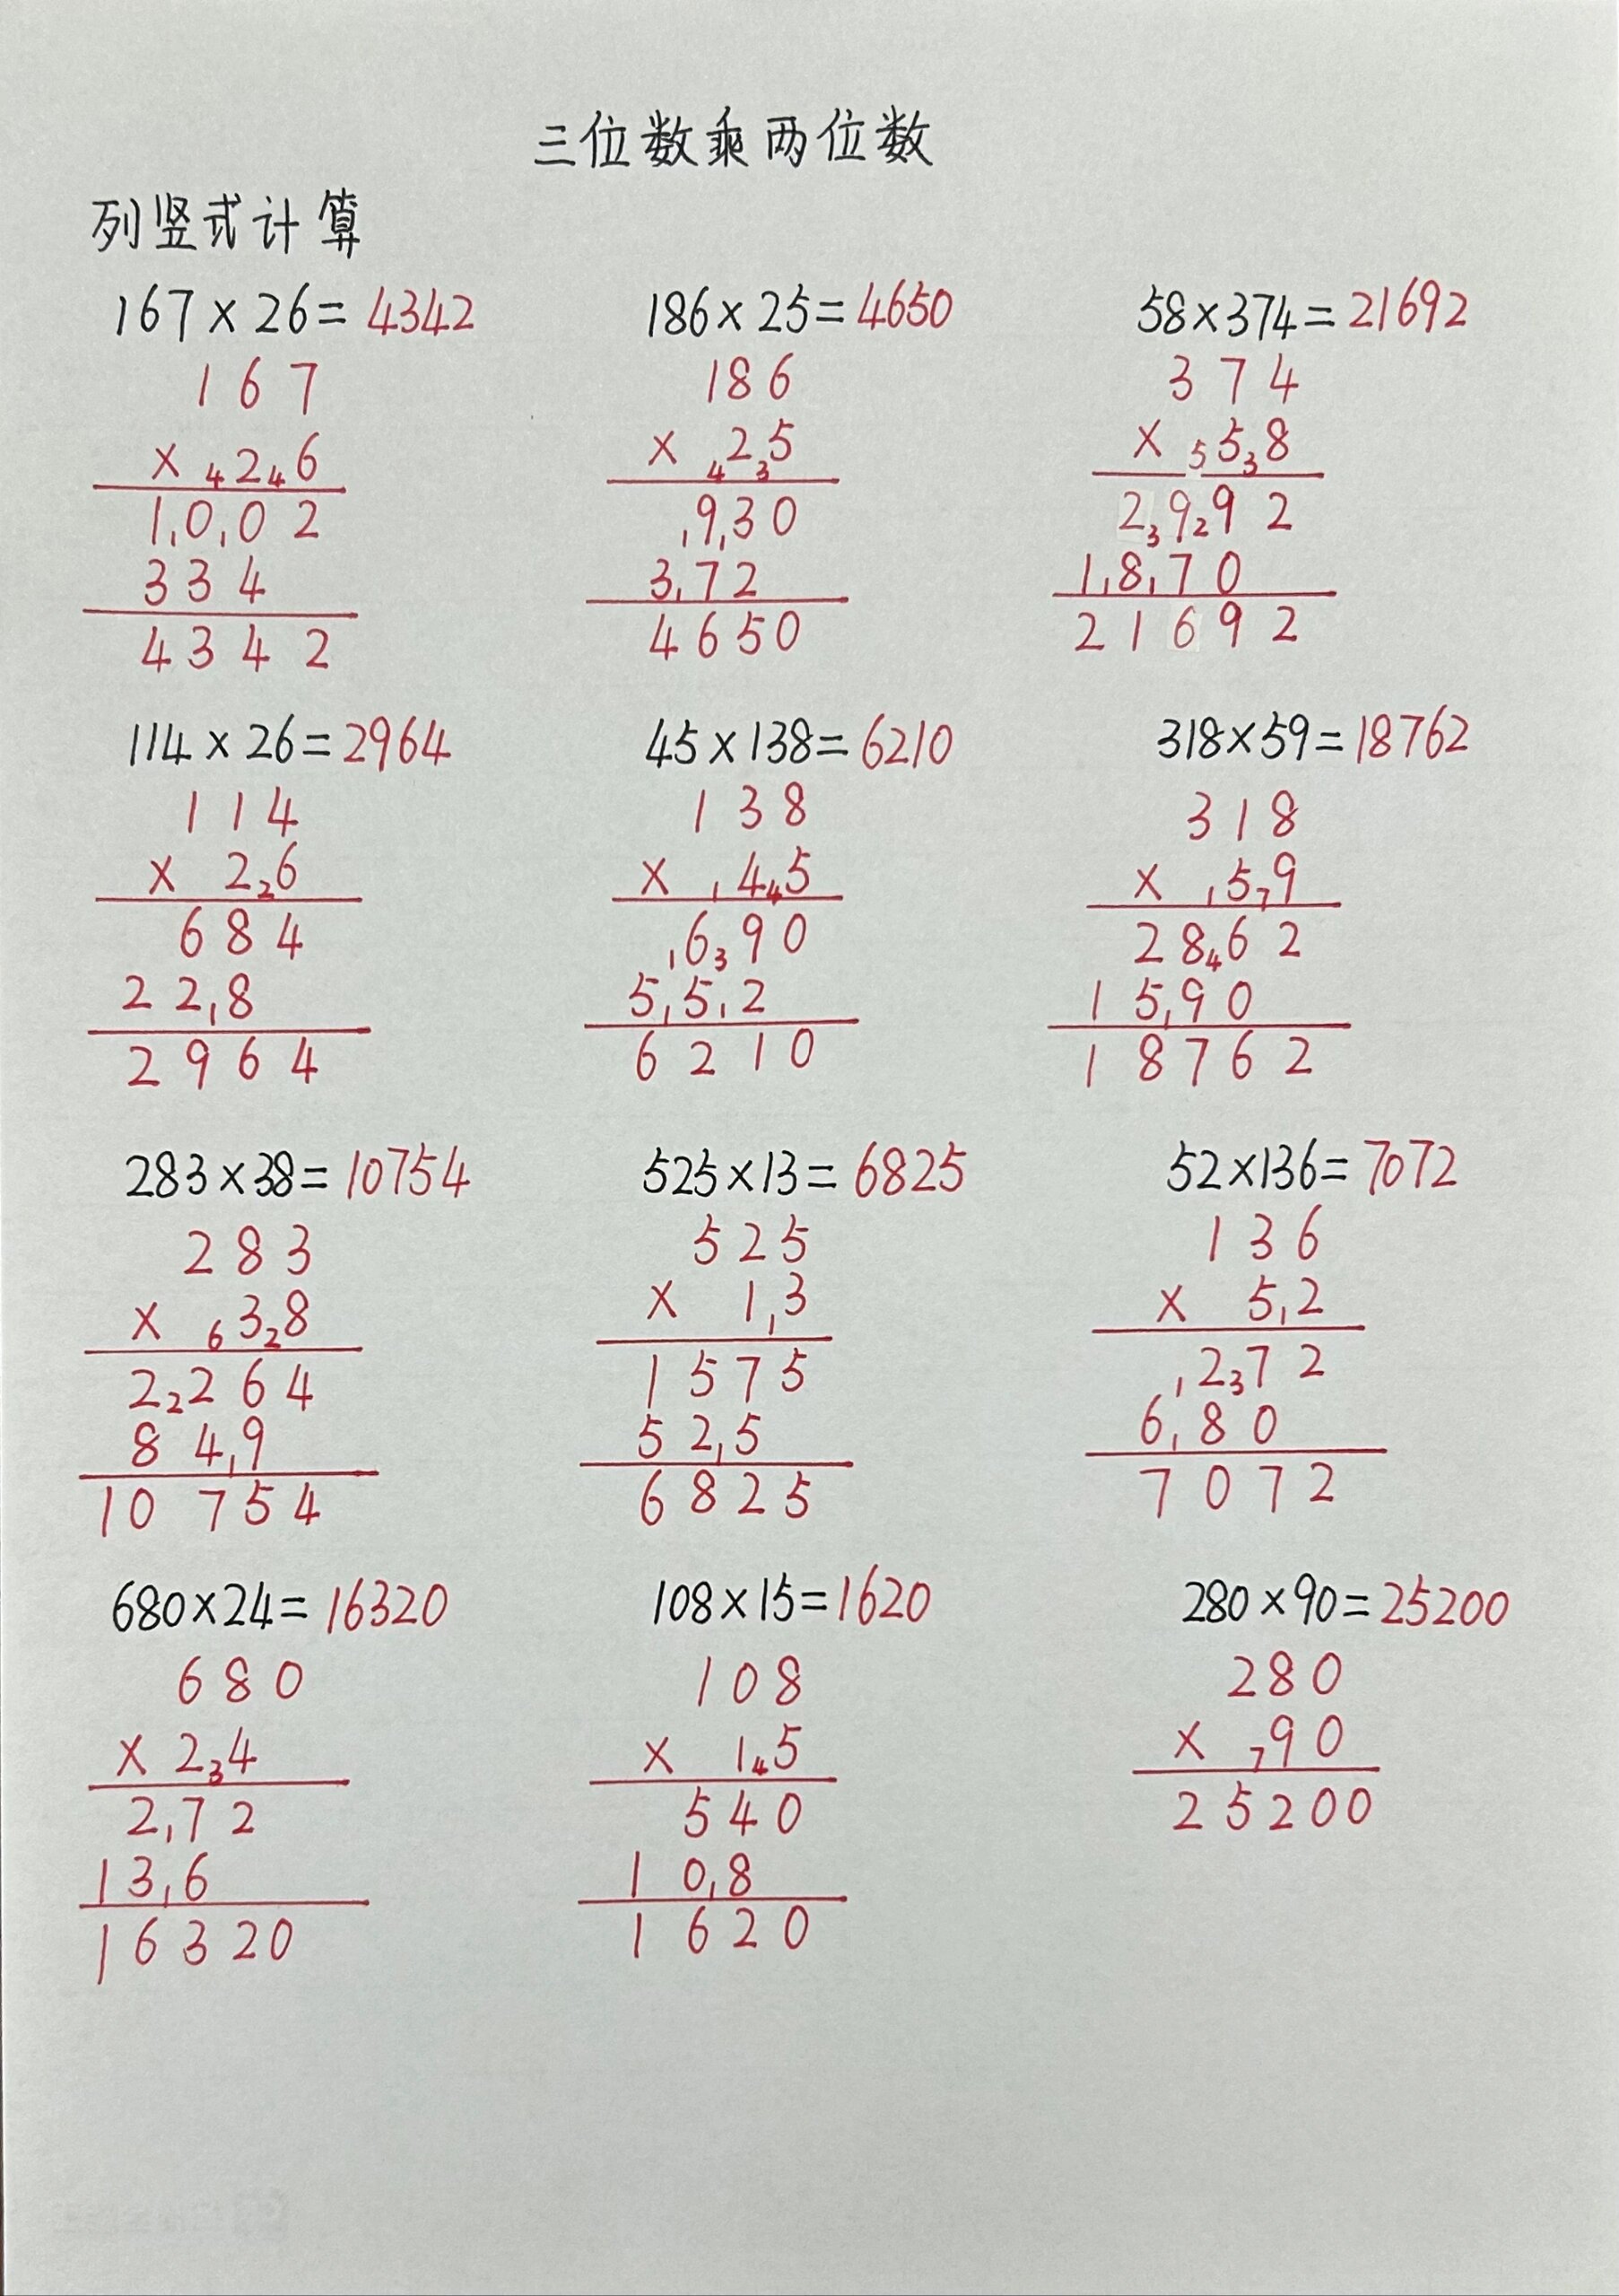 三位数乘两位数
列竖式计算
167×26=4342
167
×4246
1,0,02
334
4342
186×25=4650
186
×4235
,9,30
3,72
4650
58×374=21692
374
×5538
239292
1,8,70
21692
114×26=2964
114
×226
684
22,8
2964
45×138=6210
138
×,445
,6390
5,5,2
6210
318×59=18762
318
×,579
28462
15,90
18762
283×38=10754
283
×6328
22264
84,9
10754
525×13=6825
525
×1,3
1575
52,5
6825
52×136=7072
136
×5,2
,2372
6,80
7072
680×24=16320
680
×234
2,72
13,6
16320
108×15=1620
108
×145
540
10,8
1620
280×90=25200
280
×790
25200